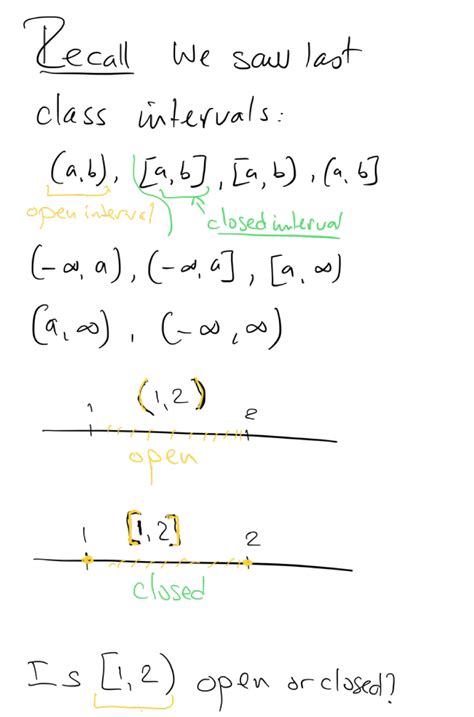 Recall We saw last
class intervals:
(a,b), [a,b], [a,b), (a,b]
open interval closed interval
(-∞, a), (-∞, a], [a, ∞)
(a, ∞), (-∞, ∞)
(1,2)
1 2
open
[1,2]
1 2
closed
Is [1,2) open or closed?